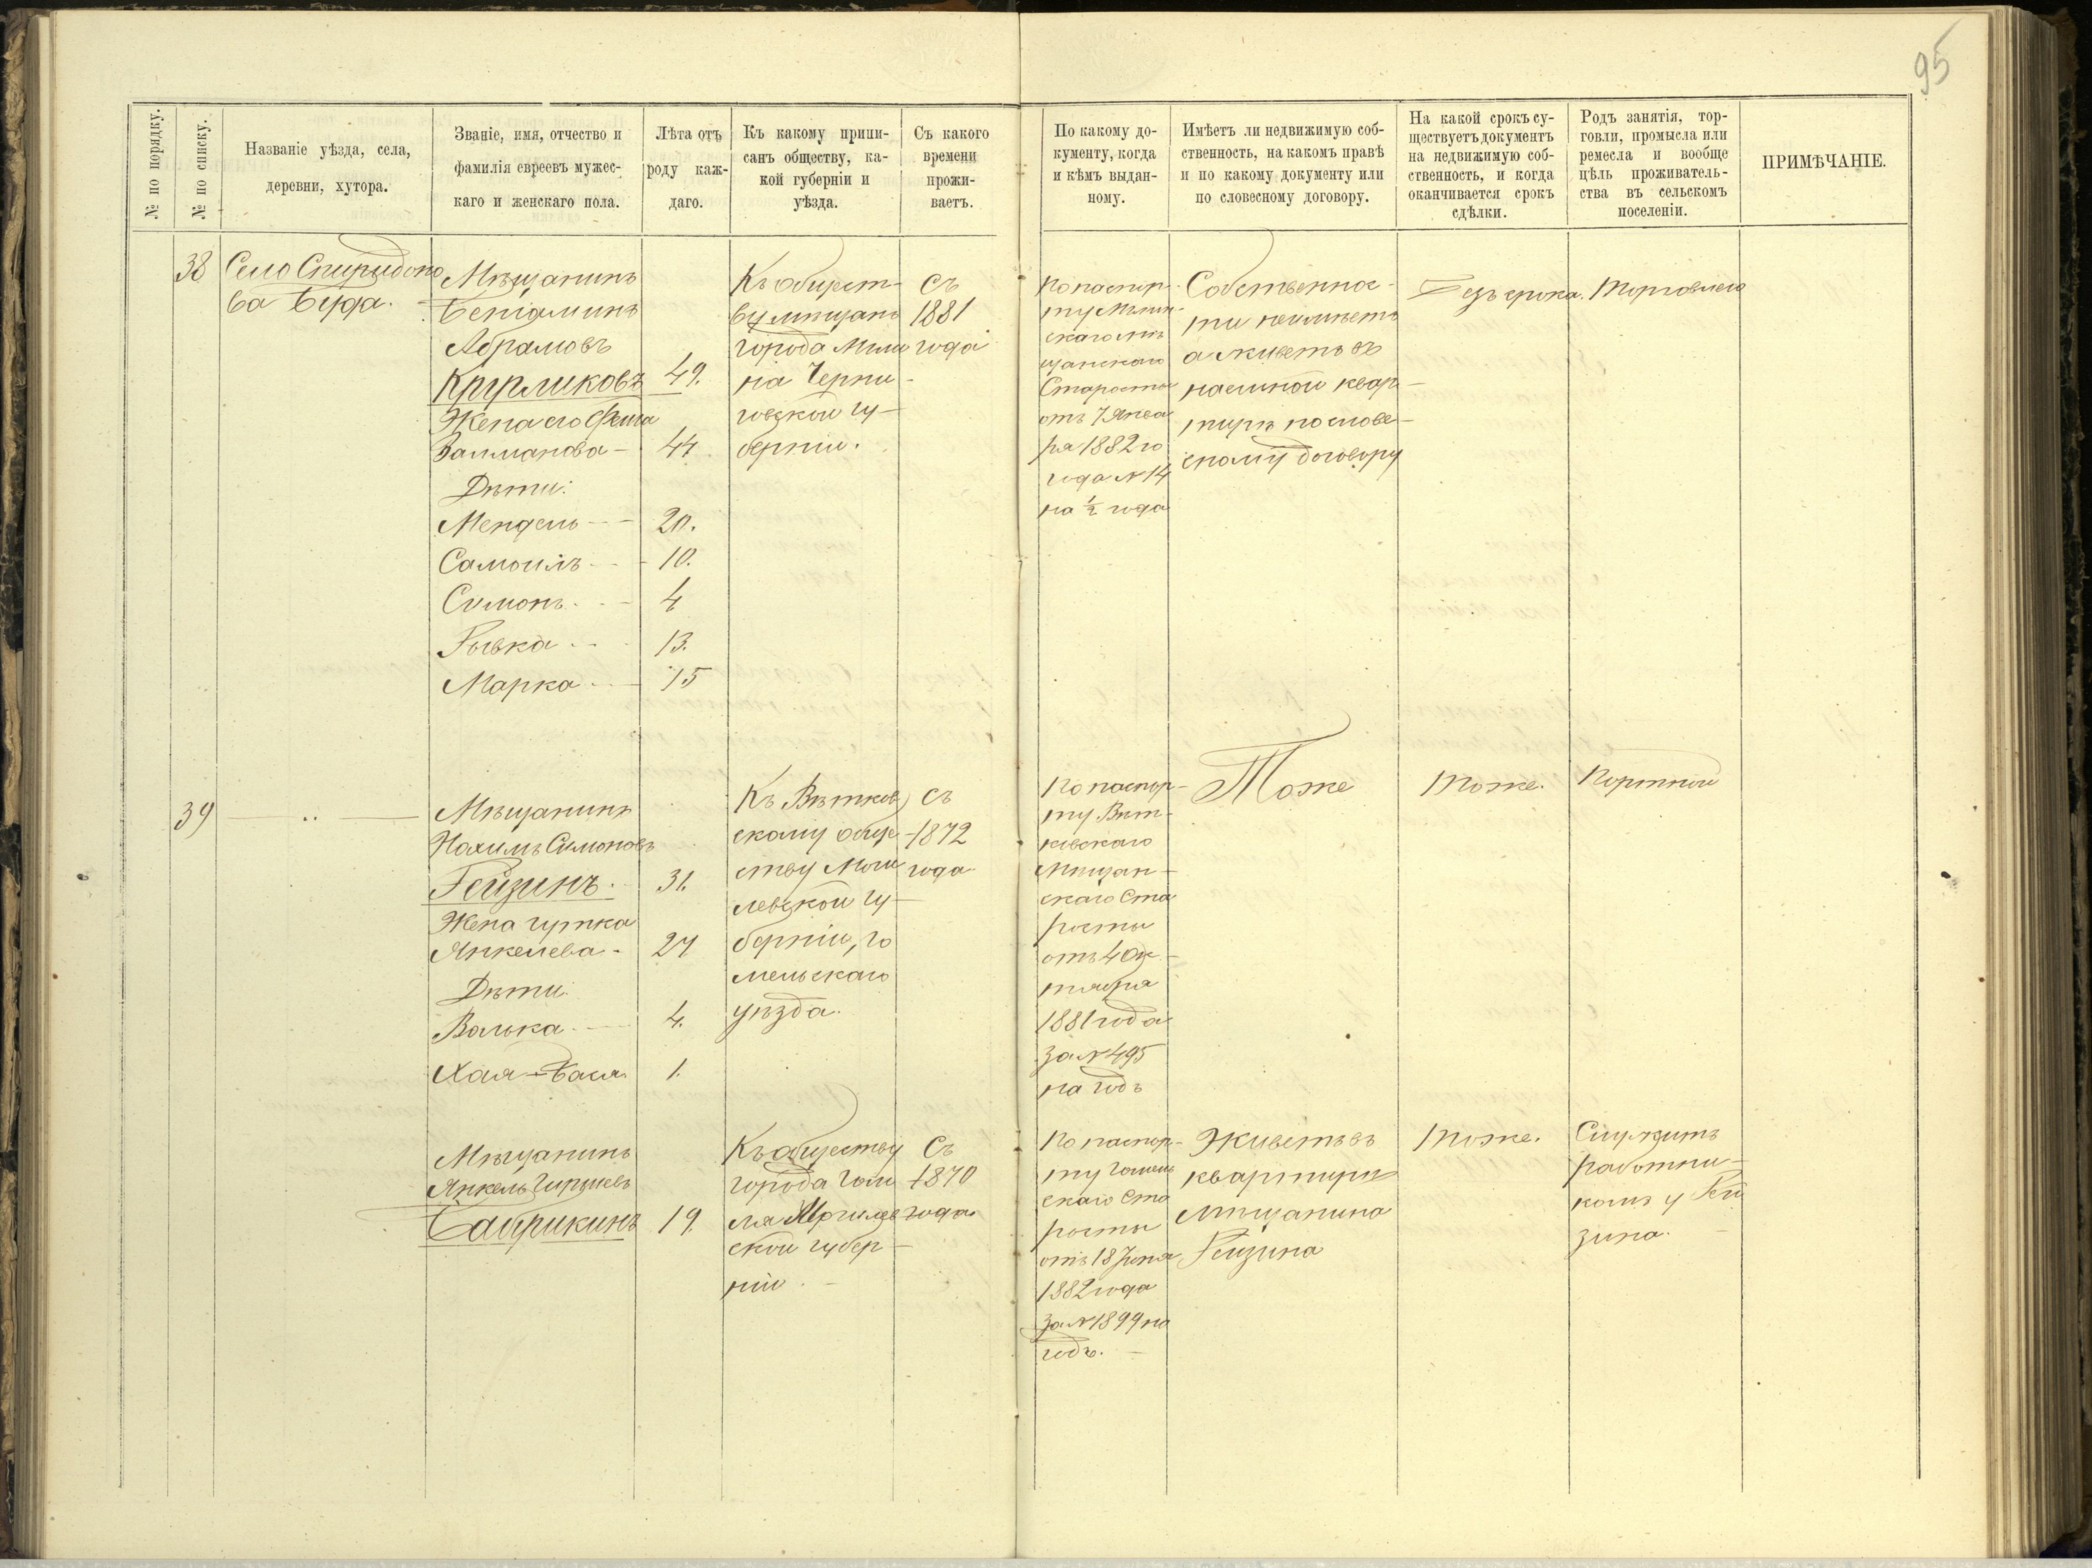 95
№ по порядку.
№ по списку.
Названіе уѣзда, села,
деревни, хутора.
Званіе, имя, отчество и
фамилія евреевъ мужес-
каго и женскаго пола.
Лѣта отъ
роду каж-
даго.
Къ какому припи-
санъ обществу, ка-
кой губерніи и
уѣзда.
Съ какого
времени
прожи-
ваетъ.
По какому до-
кументу, когда
и кѣмъ выдан-
ному.
Имѣетъ ли недвижимую соб-
ственность, на какомъ правѣ
и по какому документу или
по словесному договору.
На какой срокъ су-
ществуетъ документъ
на недвижимую соб-
ственность, и когда
оканчивается срокъ
сдѣлки.
Родъ занятія, тор-
говли, промысла или
ремесла и вообще
цѣль проживатель-
ства въ сельскомъ
поселеніи.
ПРИМѢЧАНІЕ.
38
Село Спиридоно
ва Буда.
Мѣщанинъ
Беніаминъ
Абрамовъ
Кругликовъ 49.
Жена его Фейга
Залманова - 44
Дѣти:
Мендель - - 20.
Самоилъ - - 10.
Симонъ - - 4
Рывка - - 13.
Марка - - 15
Къ общест-
ву мѣщанъ
города Мгли
на Черни-
говской гу-
берніи.
Съ
1881
года
По паспор-
ту Мглин-
скаго мѣ
щанскаго
Старосты
отъ 7 Янва
ря 1882 го
года № 14
на ½ года
Собственнос-
ти неимѣетъ
а живетъ въ
наемной квар-
тирѣ по слове-
сному договору
Безъ срока.
Торговлею
39
- " -
Мѣщанинъ
Нохимъ Симоновъ
Гейзинъ. 31.
Жена Гутка
Янкелева - 27
Дѣти
Волька - 4.
Хая-Бася 1.
Къ Вѣтков
скому обще-
ству Моги
левской гу-
берніи, Го
мельскаго
уѣзда.
Съ
1872
года
По паспор-
ту Вѣт-
ковскаго
Мѣщан-
скаго Ста
росты
отъ 4 Ок-
тября
1881 года
за № 495
на годъ
Тоже
Тоже.
Портной
Мѣщанинъ
Янкель Гиршевъ
Бабрикинъ 19.
Къ обществу
города Гоме
ля Могилев
ской губер-
ніи. -
Съ
1870
года
По паспор-
ту Гомель
скаго Ста
росты
отъ 18 Іюня
1882 года
за № 1899 на
годъ. -
Живетъ въ
квартирѣ
мѣщанина
Гейзина
Тоже.
Служитъ
работни-
комъ у Гей
зина. -